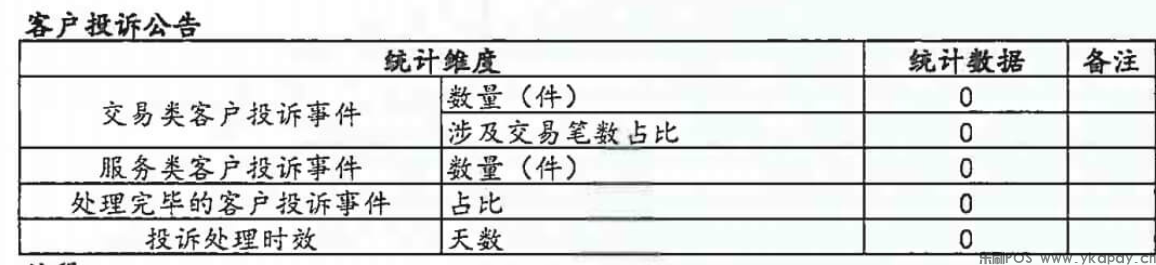 客户投诉公告
统计维度 统计数据 备注
交易类客户投诉事件 数量（件） 0
涉及交易笔数占比 0
服务类客户投诉事件 数量（件） 0
处理完毕的客户投诉事件 占比 0
投诉处理时效 天数 0
乐刷POS www.ykapay.cn